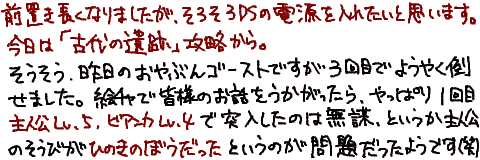 前置き長くなりましたが、そろそろDSの電源を入れたいと思います。
今日は「古代の遺跡」攻略から。
そうそう、昨日のおやぶんゴーストですが3回目でようやく倒
せました。絵チャで皆様のお話をうかがったら、やっぱり1回目
主人公Lv.5,ビアンカLv.4で突入したのは無謀、というか主人公
のそうびがひのきのぼうだったというのが問題だったようです(笑)